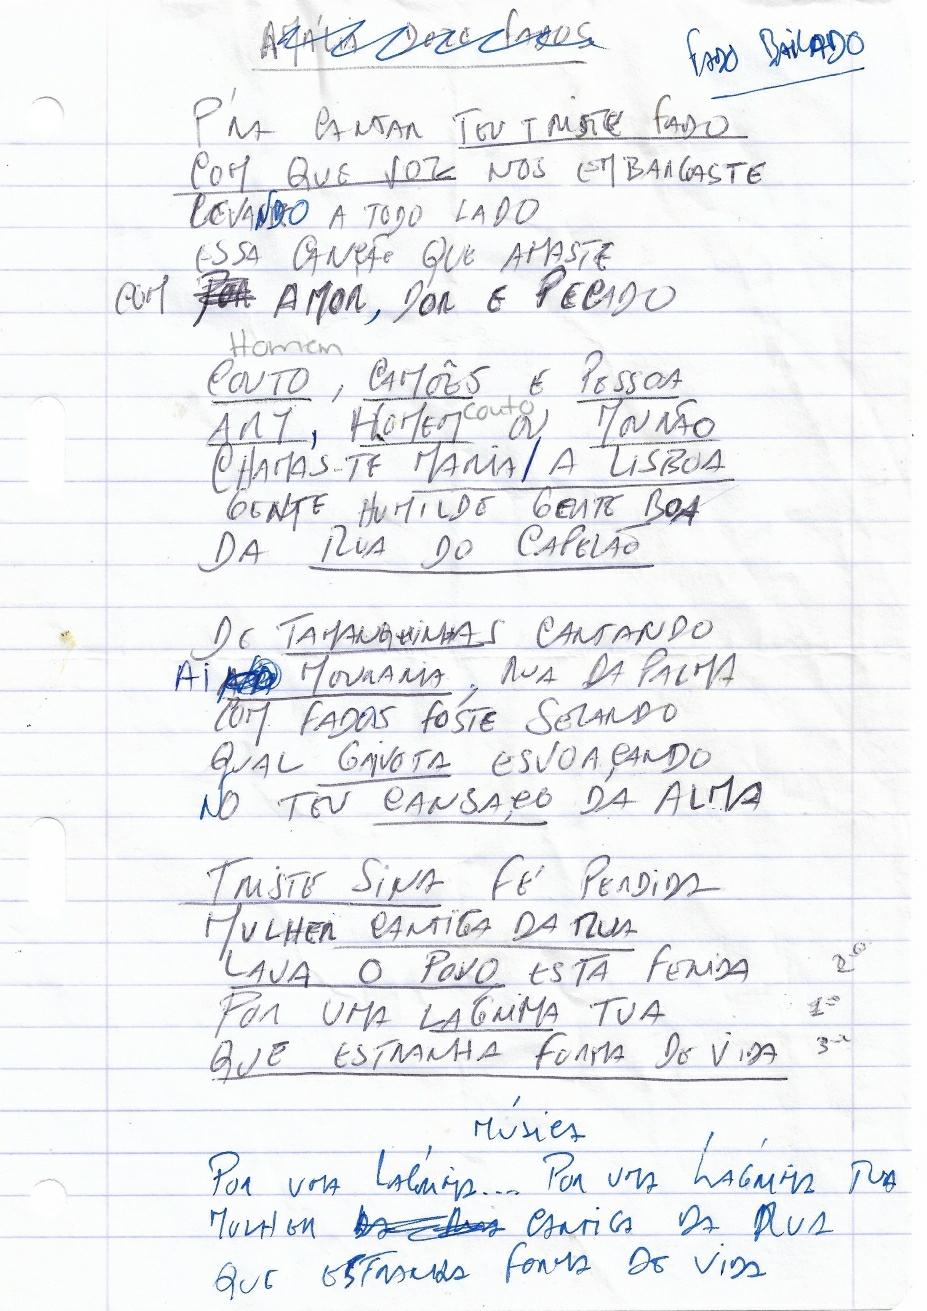 AMÁLIA DOZE FADOS
FADO BAILADO
P'RA CANTAR TEU TRISTE FADO
COM QUE VOZ NOS EMBARGASTE
LEVANDO A TODO LADO
ESSA CANÇÃO QUE AMASTE
COM POR AMOR, DOR E PECADO
Homem
COUTO, CAMÕES E PESSOA
ARY, HOMEM couto OU MOURÃO
CHAMAS-TE MARIA / A LISBOA
GENTE HUMILDE GENTE BOA
DA RUA DO CAPELÃO
DE TAMANQUINHAS CANTANDO
AI MOURARIA, RUA DA PALMA
COM FADOS FOSTE SELANDO
QUAL GAIVOTA ESVOAÇANDO
NO TEU CANSAÇO DA ALMA
TRISTE SINA FÉ PERDIDA
MULHER CANTIGA DA RUA
LAVA O POVO ESTA FERIDA 2º
POR UMA LÁGRIMA TUA 1º
QUE ESTRANHA FORMA DE VIDA 3º
MÚSICA
POR UMA LÁGRIMA... POR UMA LÁGRIMA TUA
MULHER CANTIGA DA RUA
QUE ESTRANHA FORMA DE VIDA